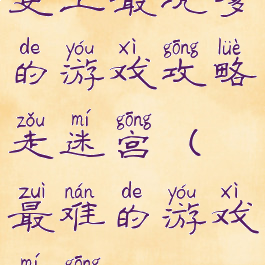 de yóu xì gōng lüè
的游戏攻略
zǒu mí gōng
走迷宫（
zuì nán de yóu xì
最难的游戏
mí gōng